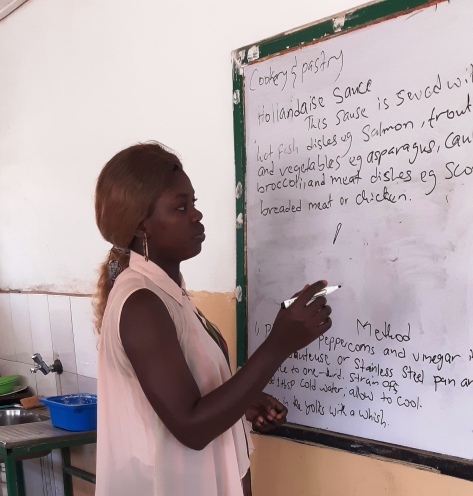 Cookery & pastry
Hollandaise Sauce
This Sause is Seved wi
hot fish dishes eg Salmon, trout
and vegetables eg asparagus, Cau
broccoli, and meat dishes eg Sco
breaded meat or chicken.
Method
1) peppercorns and vinegar i
Sauteuse or Stainless Steel pan a
to one-third. Strain off
1tbsp cold water, allow to cool.
in the yolks with a whisk.